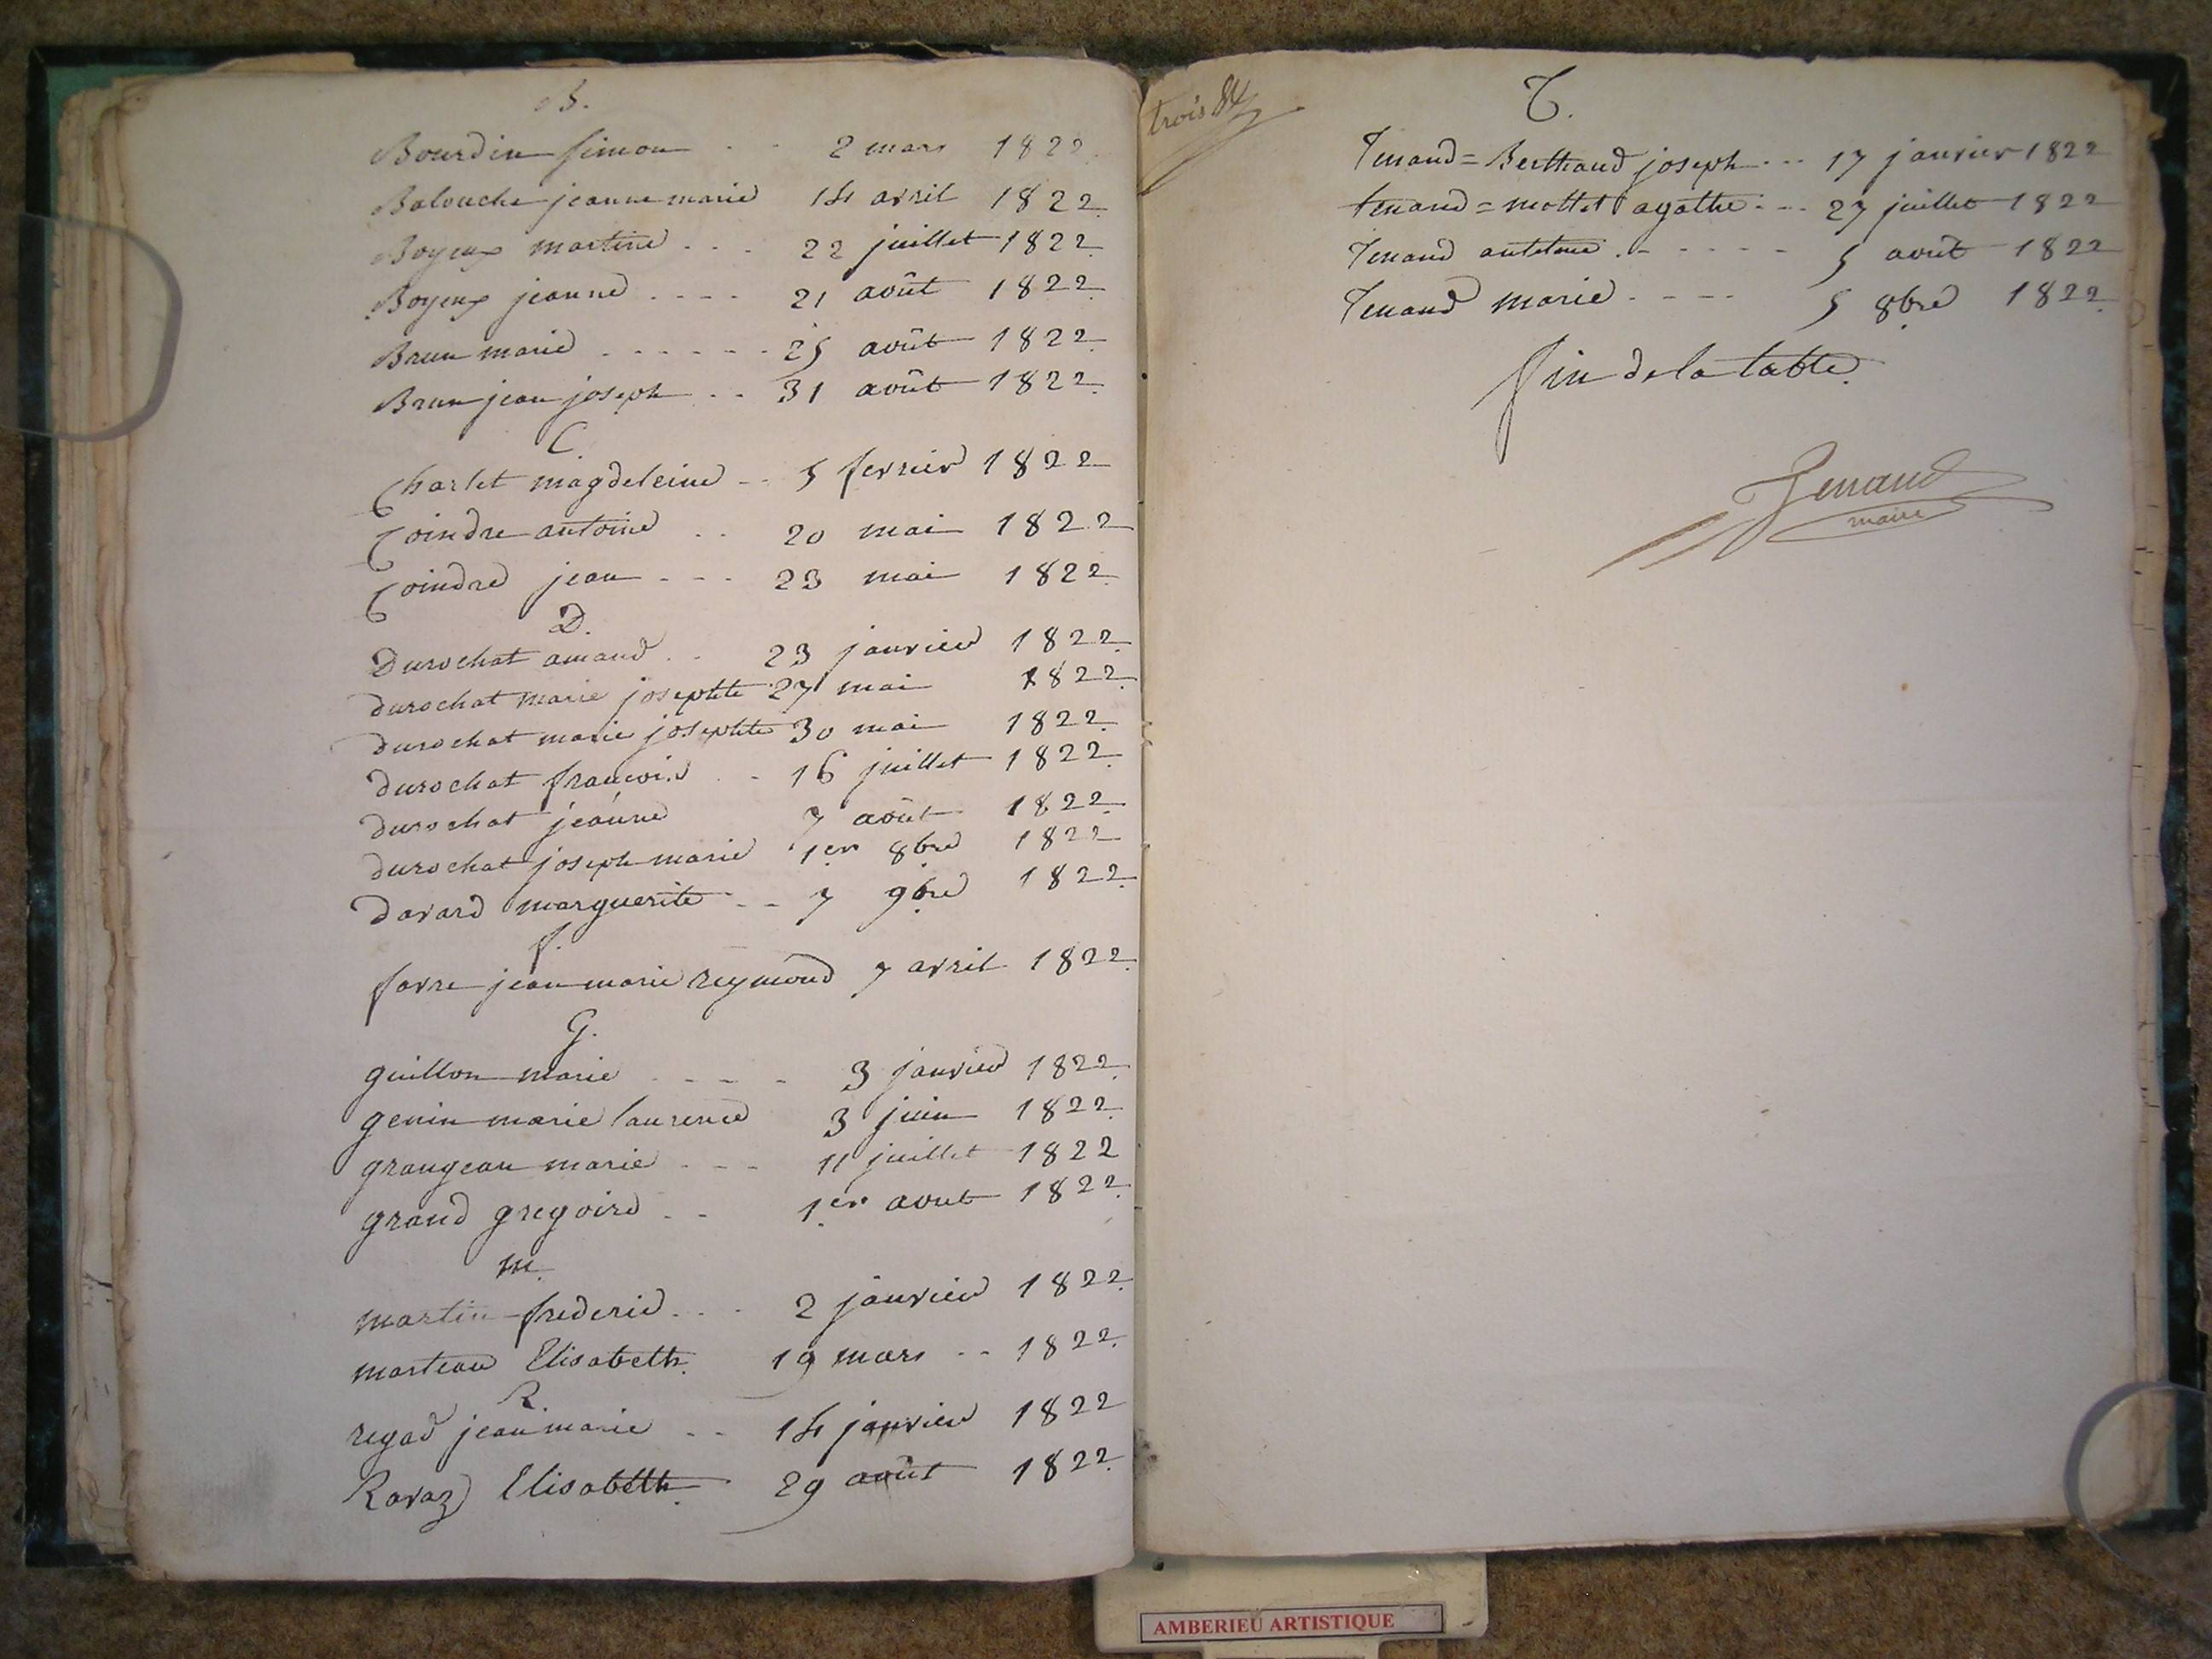 B.
Bourdin simon - - 2 mars 1822
Balouche jeanne marie 14 avril 1822
Boyeux martine - - - 22 juillet 1822
Boyeux jeanne - - - - 21 août 1822
Brun marie - - - - - - 25 août 1822
Brun jean joseph - - 31 août 1822
C.
Charlet magdeleine - - 5 fevrier 1822
Coindre antoine - - 20 mai 1822
Coindre jean - - - 23 mai 1822
D.
Durochat amand - - 23 janvier 1822
durochat marie josephte 27 mai 1822
durochat marie josephte 30 mai 1822
durochat francois - - 16 juillet 1822
durochat jeanne 7 août 1822
durochat joseph marie 1er 8bre 1822
davard marguerite - - 7 9bre 1822
f.
favre jean marie reymond 7 avril 1822
G.
guillon marie - - - - 3 janvier 1822
genin marie laurence 3 juin 1822
grangean marie - - - 11 juillet 1822
grand gregoire - - 1er aout 1822
M.
martin frederic - - - 2 janvier 1822
marteau Elisabeth. 19 mars - - 1822
R
regad jean marie - - 14 janvier 1822
Ravaz Elisabeth 29 août 1822
trois 84
T.
Tenand = Berthaud joseph - - - 17 janvier 1822
tenand = mottet agathe - - - 27 juillet 1822
Tenand antelme - - - - - - 5 août 1822
Tenand marie - - - - 5 8bre 1822
fin de la table.
Tenand
maire
AMBERIEU ARTISTIQUE